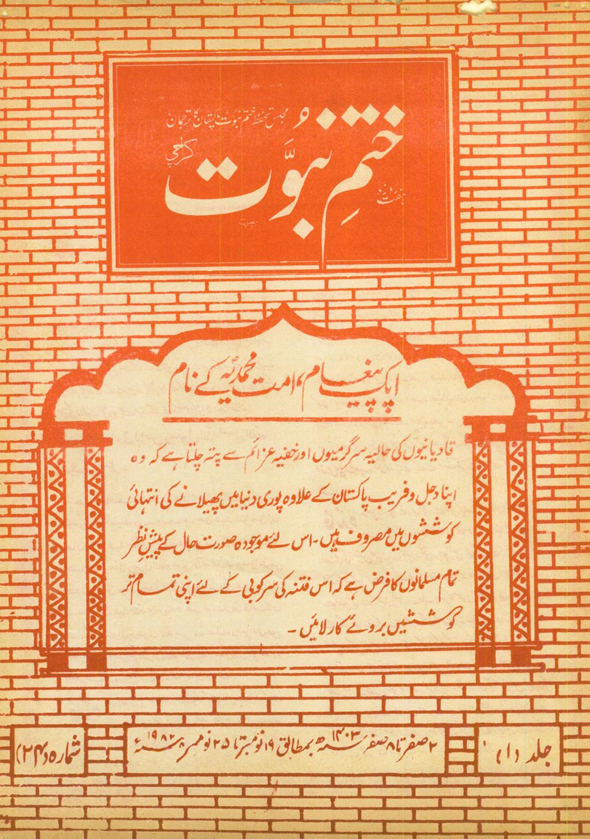 مجلس تحفظ ختم نبوت پاکستان کا ترجمان
ہفت روزہ
ختمِ نبوَّت
کراچی
ایک پیغام، امت محمدیہؐ کے نام
قادیانیوں کی حالیہ سرگرمیوں اور خفیہ عزائم سے پتہ چلتا ہے کہ وہ
اپنا دجل و فریب پاکستان کے علاوہ پوری دنیا میں پھیلانے کی انتہائی
کوششوں میں مصروف ہیں ۔ اس لئے موجودہ صورت حال کے پیشِ نظر
تمام مسلمانوں کا فرض ہے کہ اس فتنہ کی سرکوبی کے لئے اپنی تمام تر
کوششیں بروئے کار لائیں ۔
جلد (۱)
۲ صفر تا ۸ صفر ۱۴۰۳ھ بمطابق ۱۹ نومبر تا ۲۵ نومبر ۱۹۸۲ء
شمارہ (۲۴)